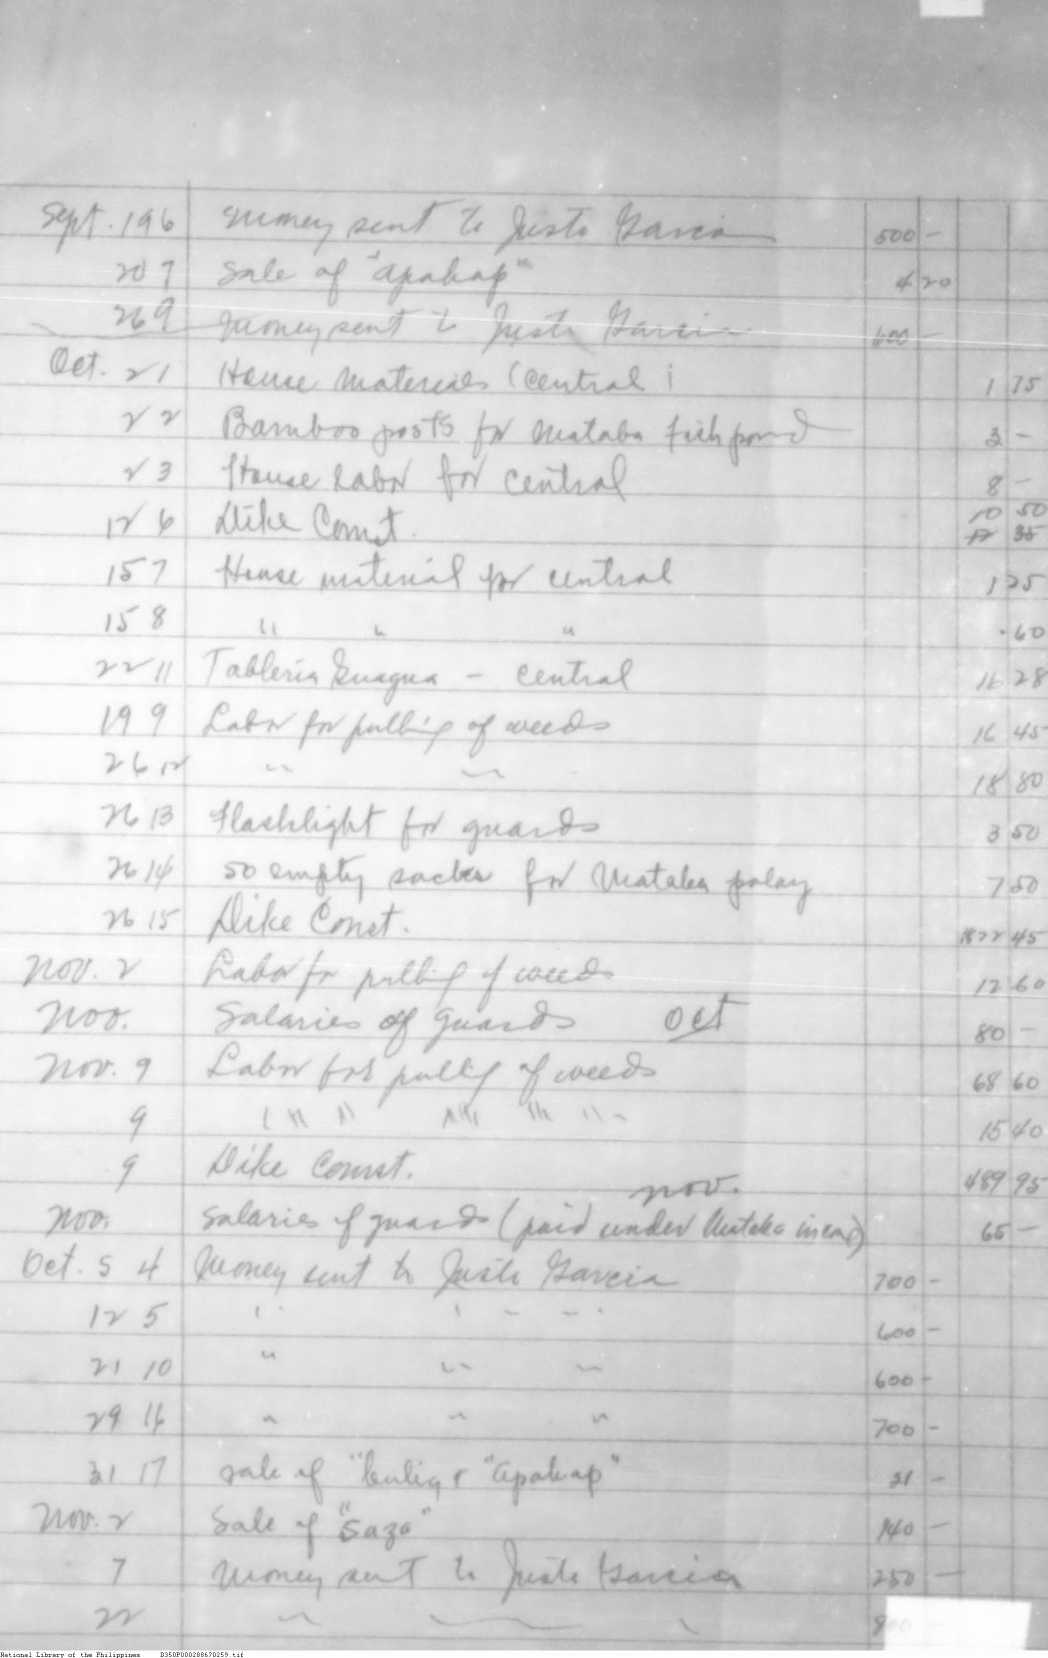 Sept. 19 6 Money sent to Justo Garcia 500 -
20 7 Sale of "apahap" 4 20
26 9 Money sent to Justo Garcia 600 -
Oct. 2 1 House Materials (Central) 1 75
2 2 Bamboo posts for Mataba fishpond 3 -
2 3 House Labor for central 8 -
10 50
12 6 Dike Const. 12 35
15 7 House material for central 1 25
15 8 " " " .60
22 11 Tableria Guagua - central 16 28
19 9 Labor for pulling of weeds 16 45
26 12 " " 18 80
26 13 Flashlight for guards 3 50
26 14 50 empty sacks for Mataba palay 7 50
26 15 Dike Const. 1822 45
Nov. 2 Labor for pulling of weeds 12 60
Nov. Salaries of guards Oct 80 -
Nov. 9 Labor for pulling of weeds 68 60
9 " " " " " " 15 40
9 Dike Const. 489 95
Nov.
Nov. Salaries of guards (paid under Mataba 65 -
Oct. 5 4 Money sent to Justo Garcia 700 -
12 5 " " " " 600 -
21 10 " " " 600 -
29 16 " " " 700 -
31 17 sale of "bulig & "apahap" 21 -
Nov. 2 Sale of "Saza" 140 -
7 Money sent to Justo Garcia 250 -
22 " " "
National Library of the Philippines D350P000288670259.tif